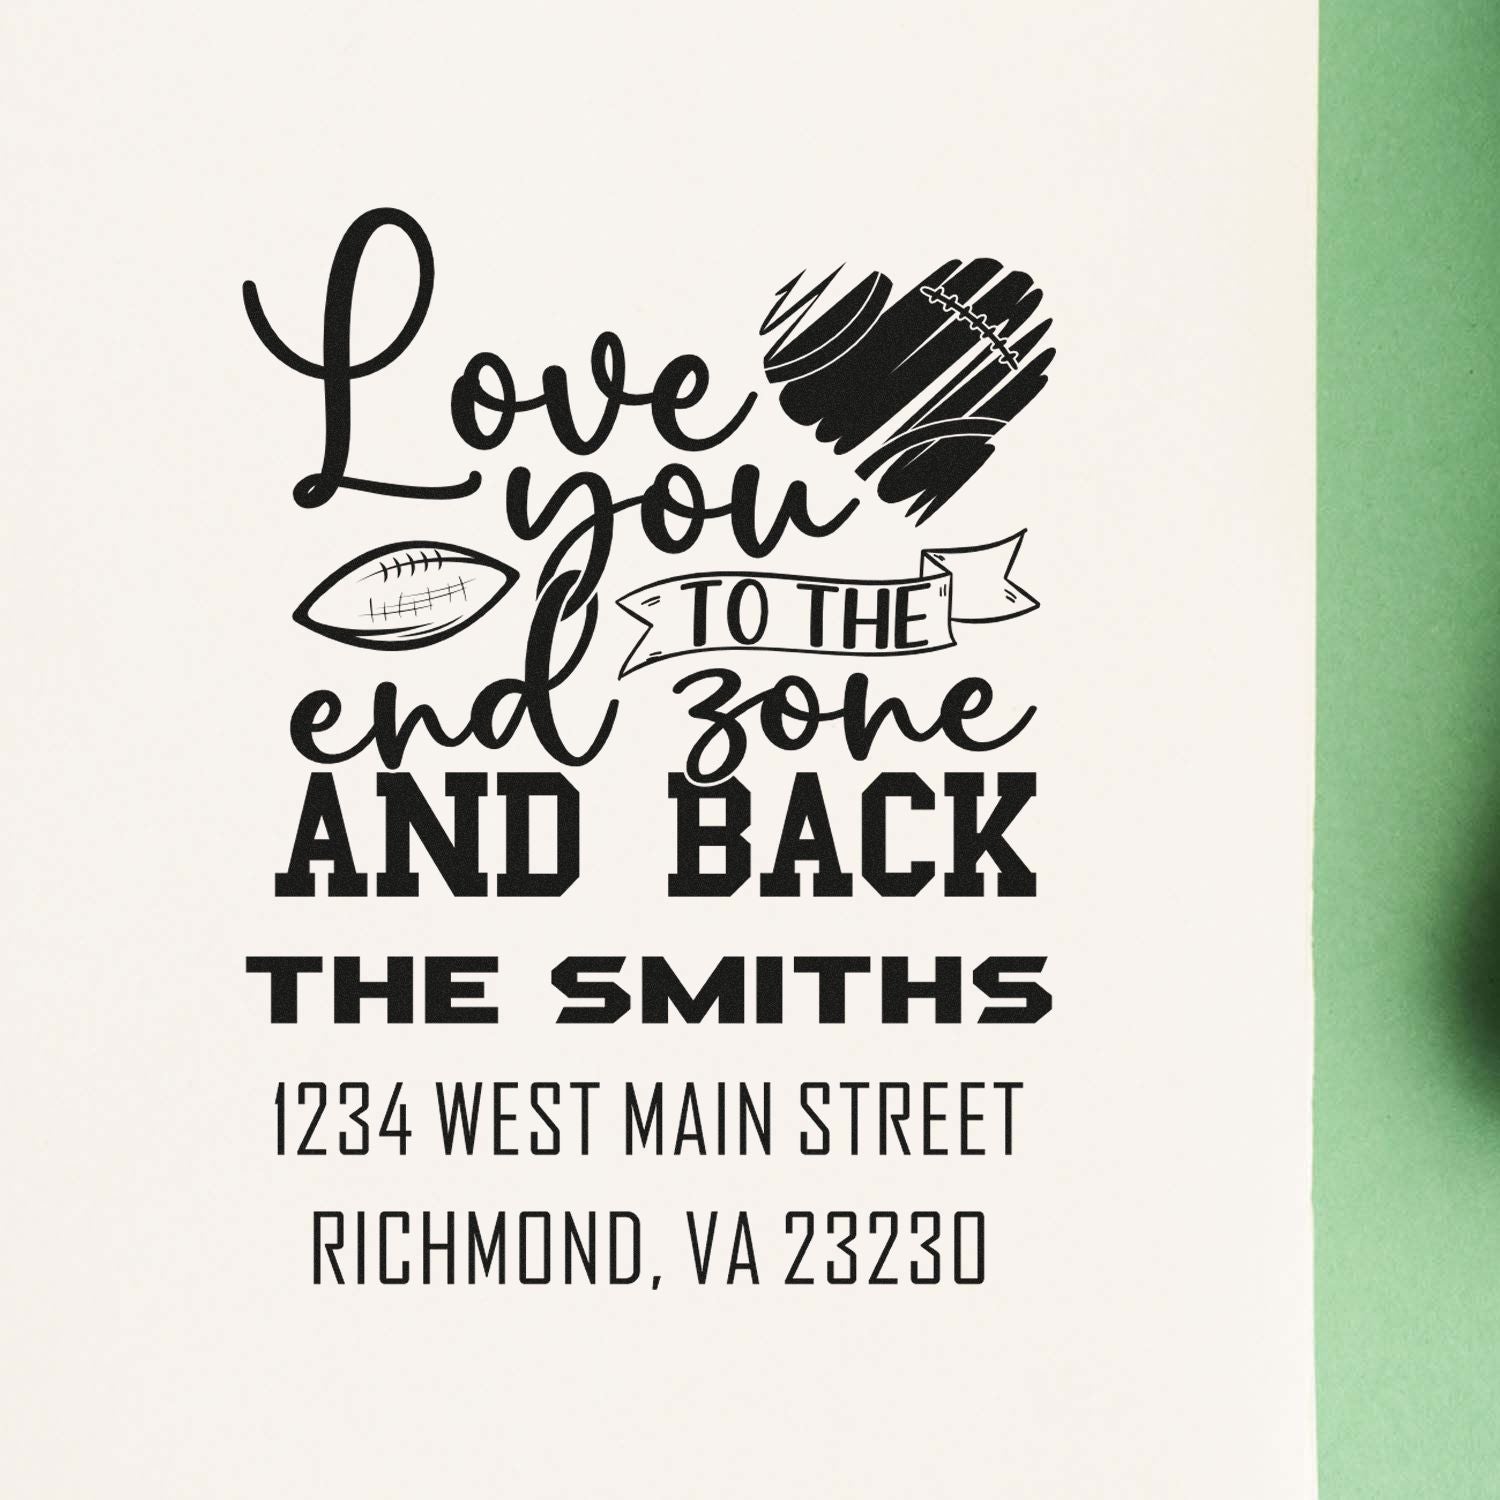 Love
you
TO THE
end zone
AND BACK
THE SMITHS
1234 WEST MAIN STREET
RICHMOND, VA 23230